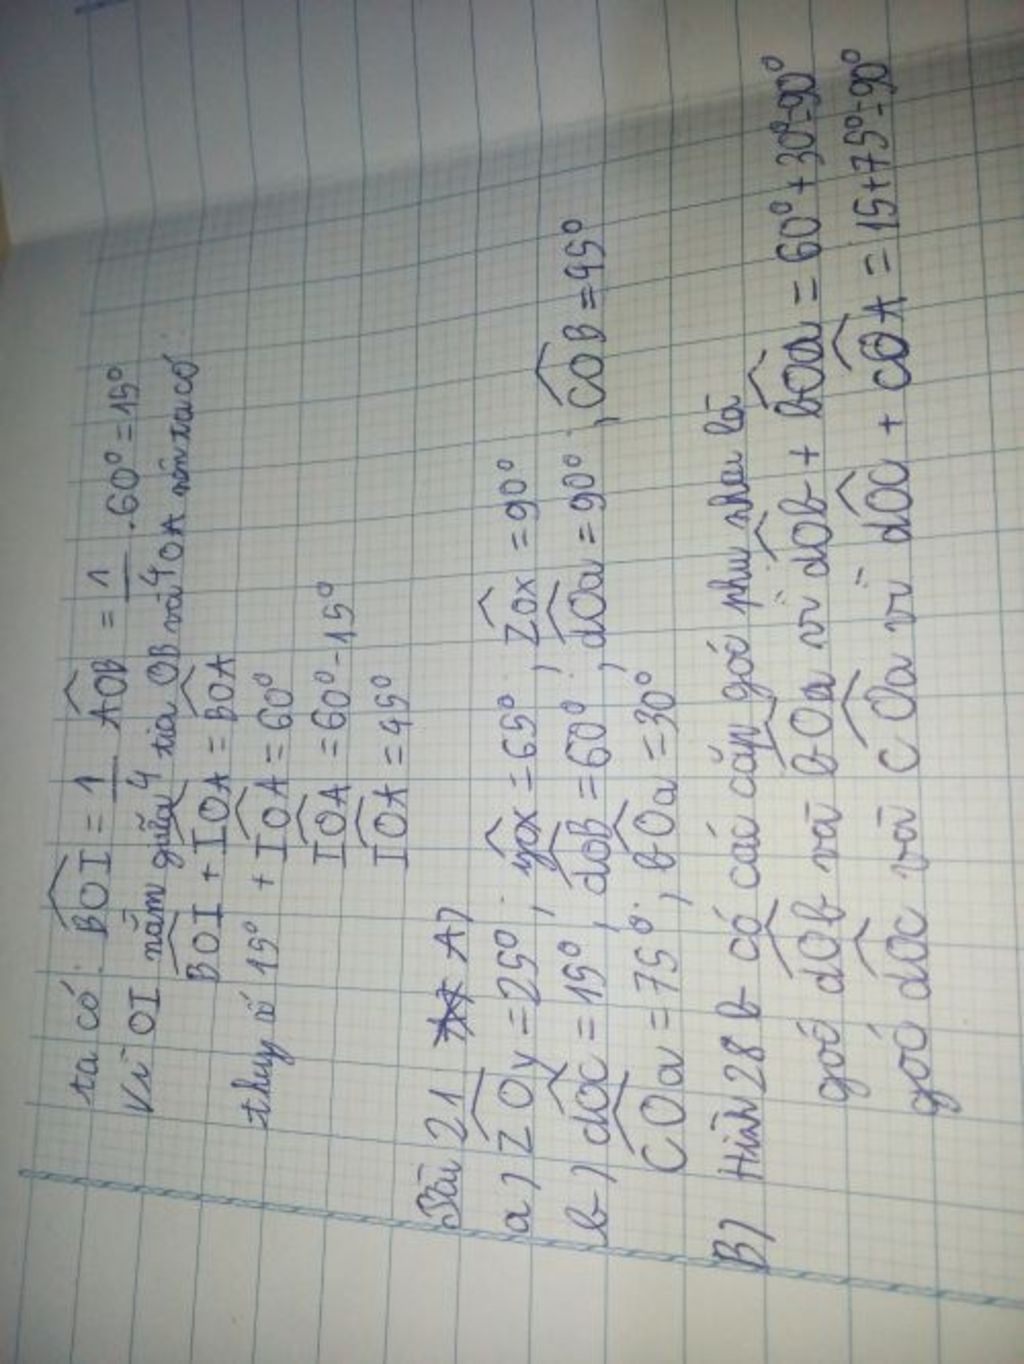 ta có: BOI = 1/4 AOB = 1/4 . 60° = 15°
Vì OI nằm giữa tia OB và OA nên ta có:
BOI + IOA = BOA
thay số 15° + IOA = 60°
IOA = 60° - 15°
IOA = 45°
Bài 21 A)
a) ZOy = 25°, yox = 65°, Zox = 90°
b) doc = 15°, doB = 60°, dOa = 90°, COB = 45°
COa = 75°, bOa = 30°
B) Hình 28 b có các cặp góc phụ nhau là
góc dOb và bOa vì dOb + bOa = 60° + 30° = 90°
góc dOC và COa vì dOC + COA = 15 + 75° = 90°